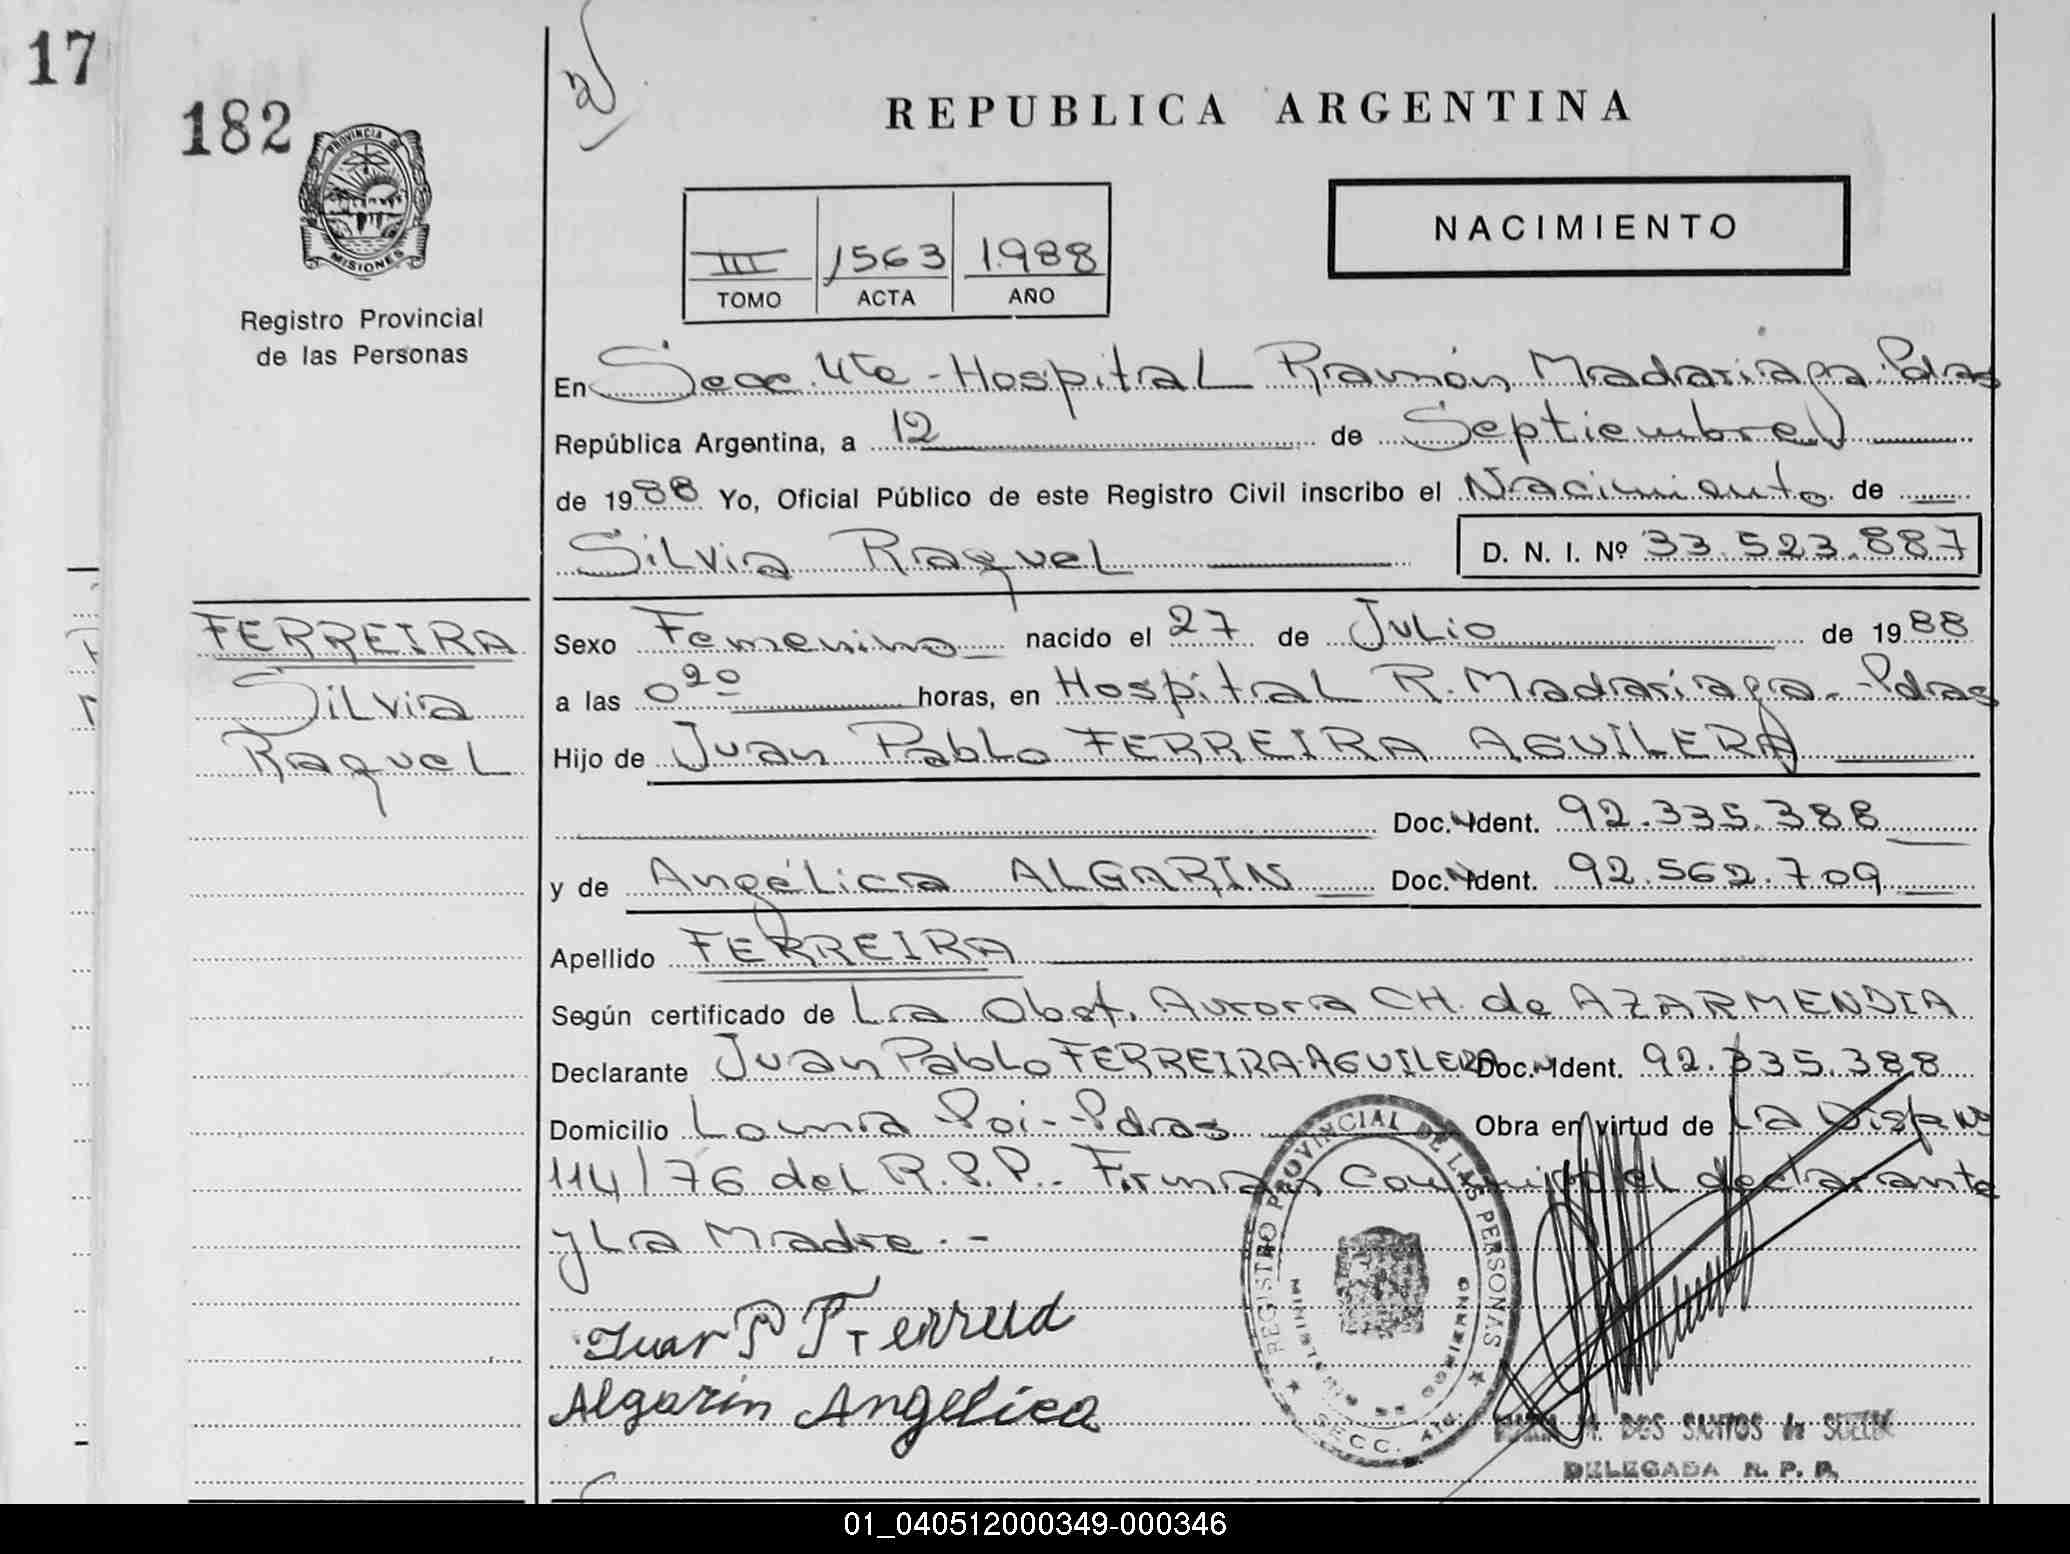 17
182
PROVINCIA DE
MISIONES
Registro Provincial
de las Personas
REPUBLICA ARGENTINA
NACIMIENTO
III 1563 1988
TOMO ACTA AÑO
En Secc. 4ta - Hospital Ramón Madariaga. Pdas
República Argentina, a 12 de Septiembre
de 1988 Yo, Oficial Público de este Registro Civil inscribo el Nacimiento de
Silvia Raquel D. N. I. Nº 33.523.887
FERREIRA
Silvia
Raquel
Sexo Femenino nacido el 27 de Julio de 1988
a las 0 20 horas, en Hospital R. Madariaga - Pdas
Hijo de Juan Pablo FERREIRA AGUILERA
Doc. Ident. 92.335.388
y de Angélica ALGARIN Doc. Ident. 92.562.709
Apellido FERREIRA
Según certificado de La Obst. Aurora CH. de AZARMENDIA
Declarante Juan Pablo FERREIRA AGUILERA Doc. Ident. 92.335.388
Domicilio Loma Poi - Pdas Obra en virtud de La Disp. Nº
114/76 del R.P.P.- Firman Conmigo el declarante
y La Madre.-
Juan P Ferreira
Algarin Angelica
REGISTRO PROVINCIAL DE LAS PERSONAS
MINISTERIO GOBIERNO
SECC. 4TA
M. DOS SANTOS de
DELEGADA R. P. P.
01_040512000349-000346